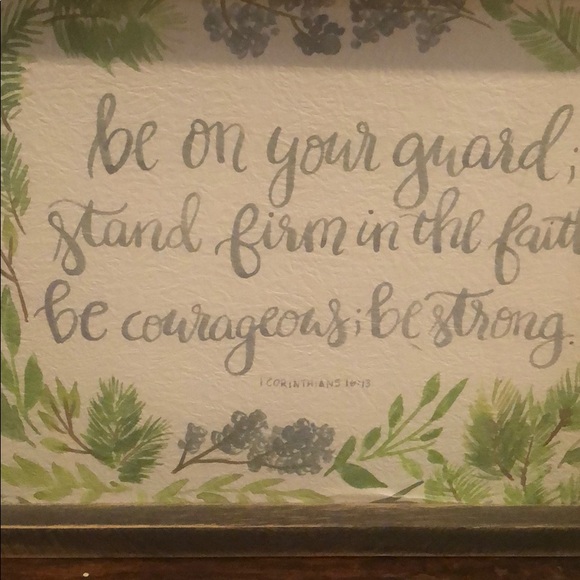 be on your guard;
stand firm in the fait
be courageous; be strong.
1 CORINTHIANS 16:13